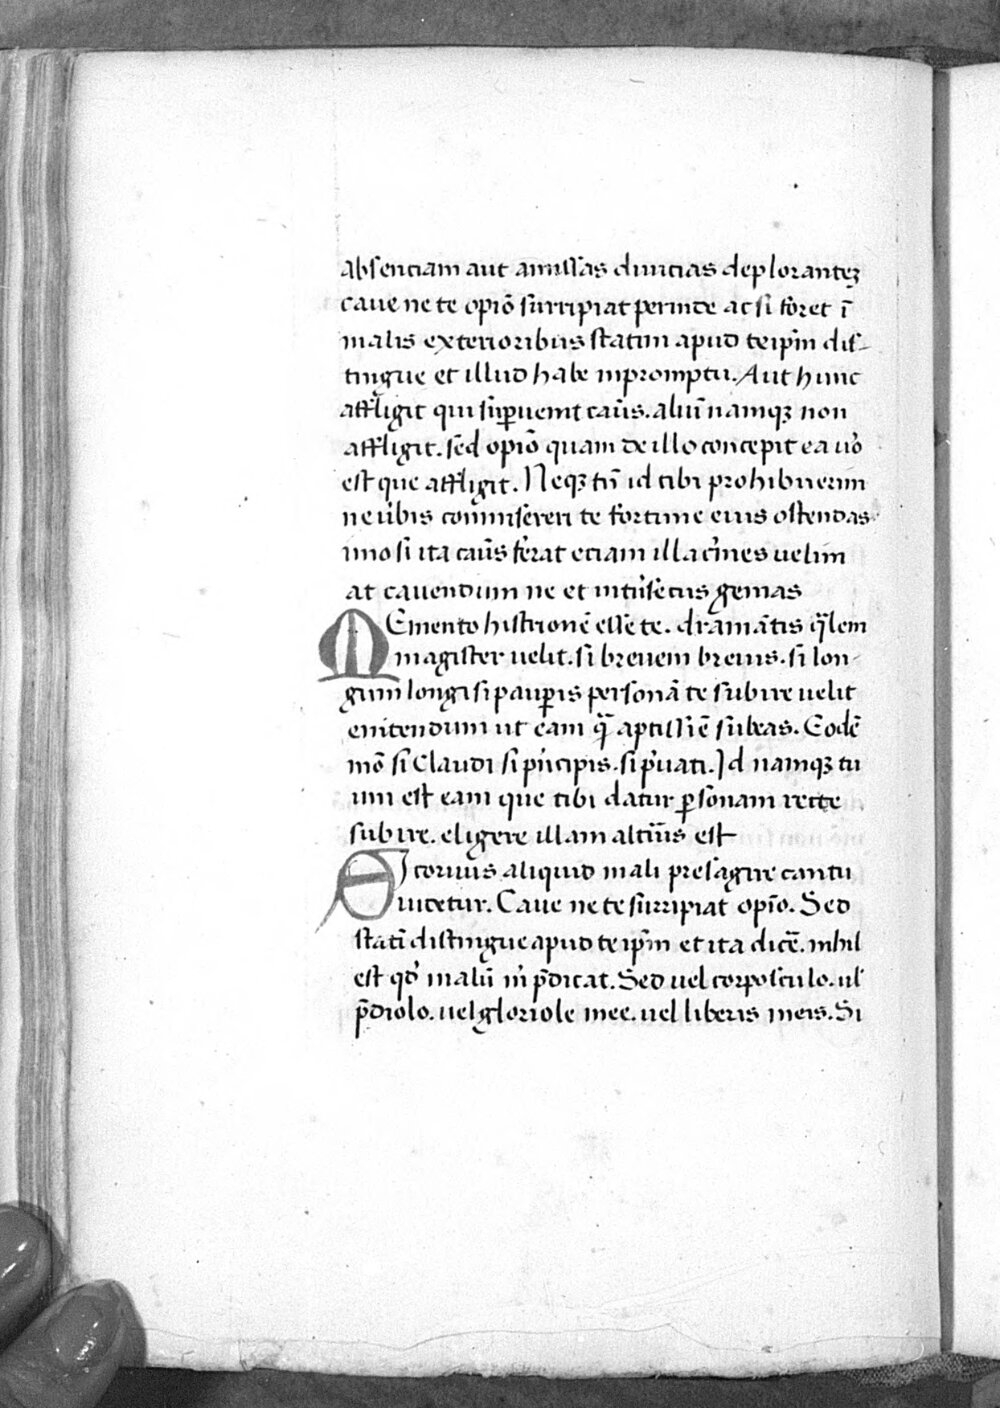 absenciam aut amissas diuicias deploranteꝫ
caue ne te opiō surripiat perinde ac si foret ī
malis exterioribus statim apud teip̄m dis-
tingue et illud habe inpromptu. Aut hunc
affligit qui suꝑuenit casus. aliū namqꝫ non
affligit. sed opiō quam de illo concepit ea uo
est que affligit. Neqꝫ tn̄ id tibi prohibuerim
ne ūbis commisereri te fortune eius ostendas
imo si ita casus ferat eciam illacrimes uelim
at cauendum ne et intrīsecus gemas
MEmento histrionē esse te. dramātis q̄lem
magister uelit. si breuem breuis. si lon-
gum longi si pauꝑis personā te subire uelit
enitendum ut eam q̄ aptissīē subeas. Eodē
mō si Claudi si pīncipis. si pīuati. Id namqꝫ tu
um est eam que tibi datur ꝑsonam recte
subire. eligere illam altīus est
SI coruus aliquid mali presagire cantu
uicetur. Caue ne te surripiat opīo. Sed
statī distingue apud teip̄m et ita dicē. nihil
est qd̓ malū m̓ p̄dicat. Sed uel corpusculo. ul̓
p̄diolo. uel gloriole mee. uel liberis meis. Si